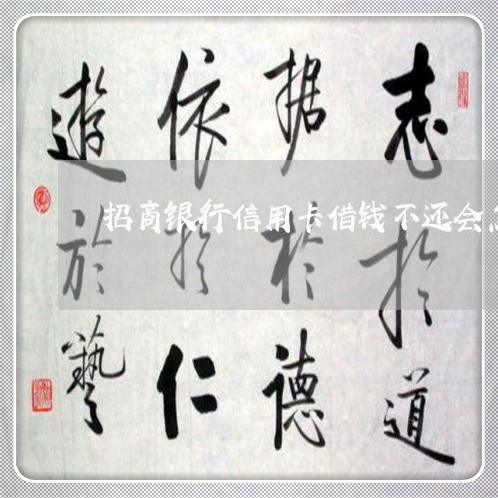 志於道
据於德
依於仁
遊於藝
招商银行信用卡借钱不还会